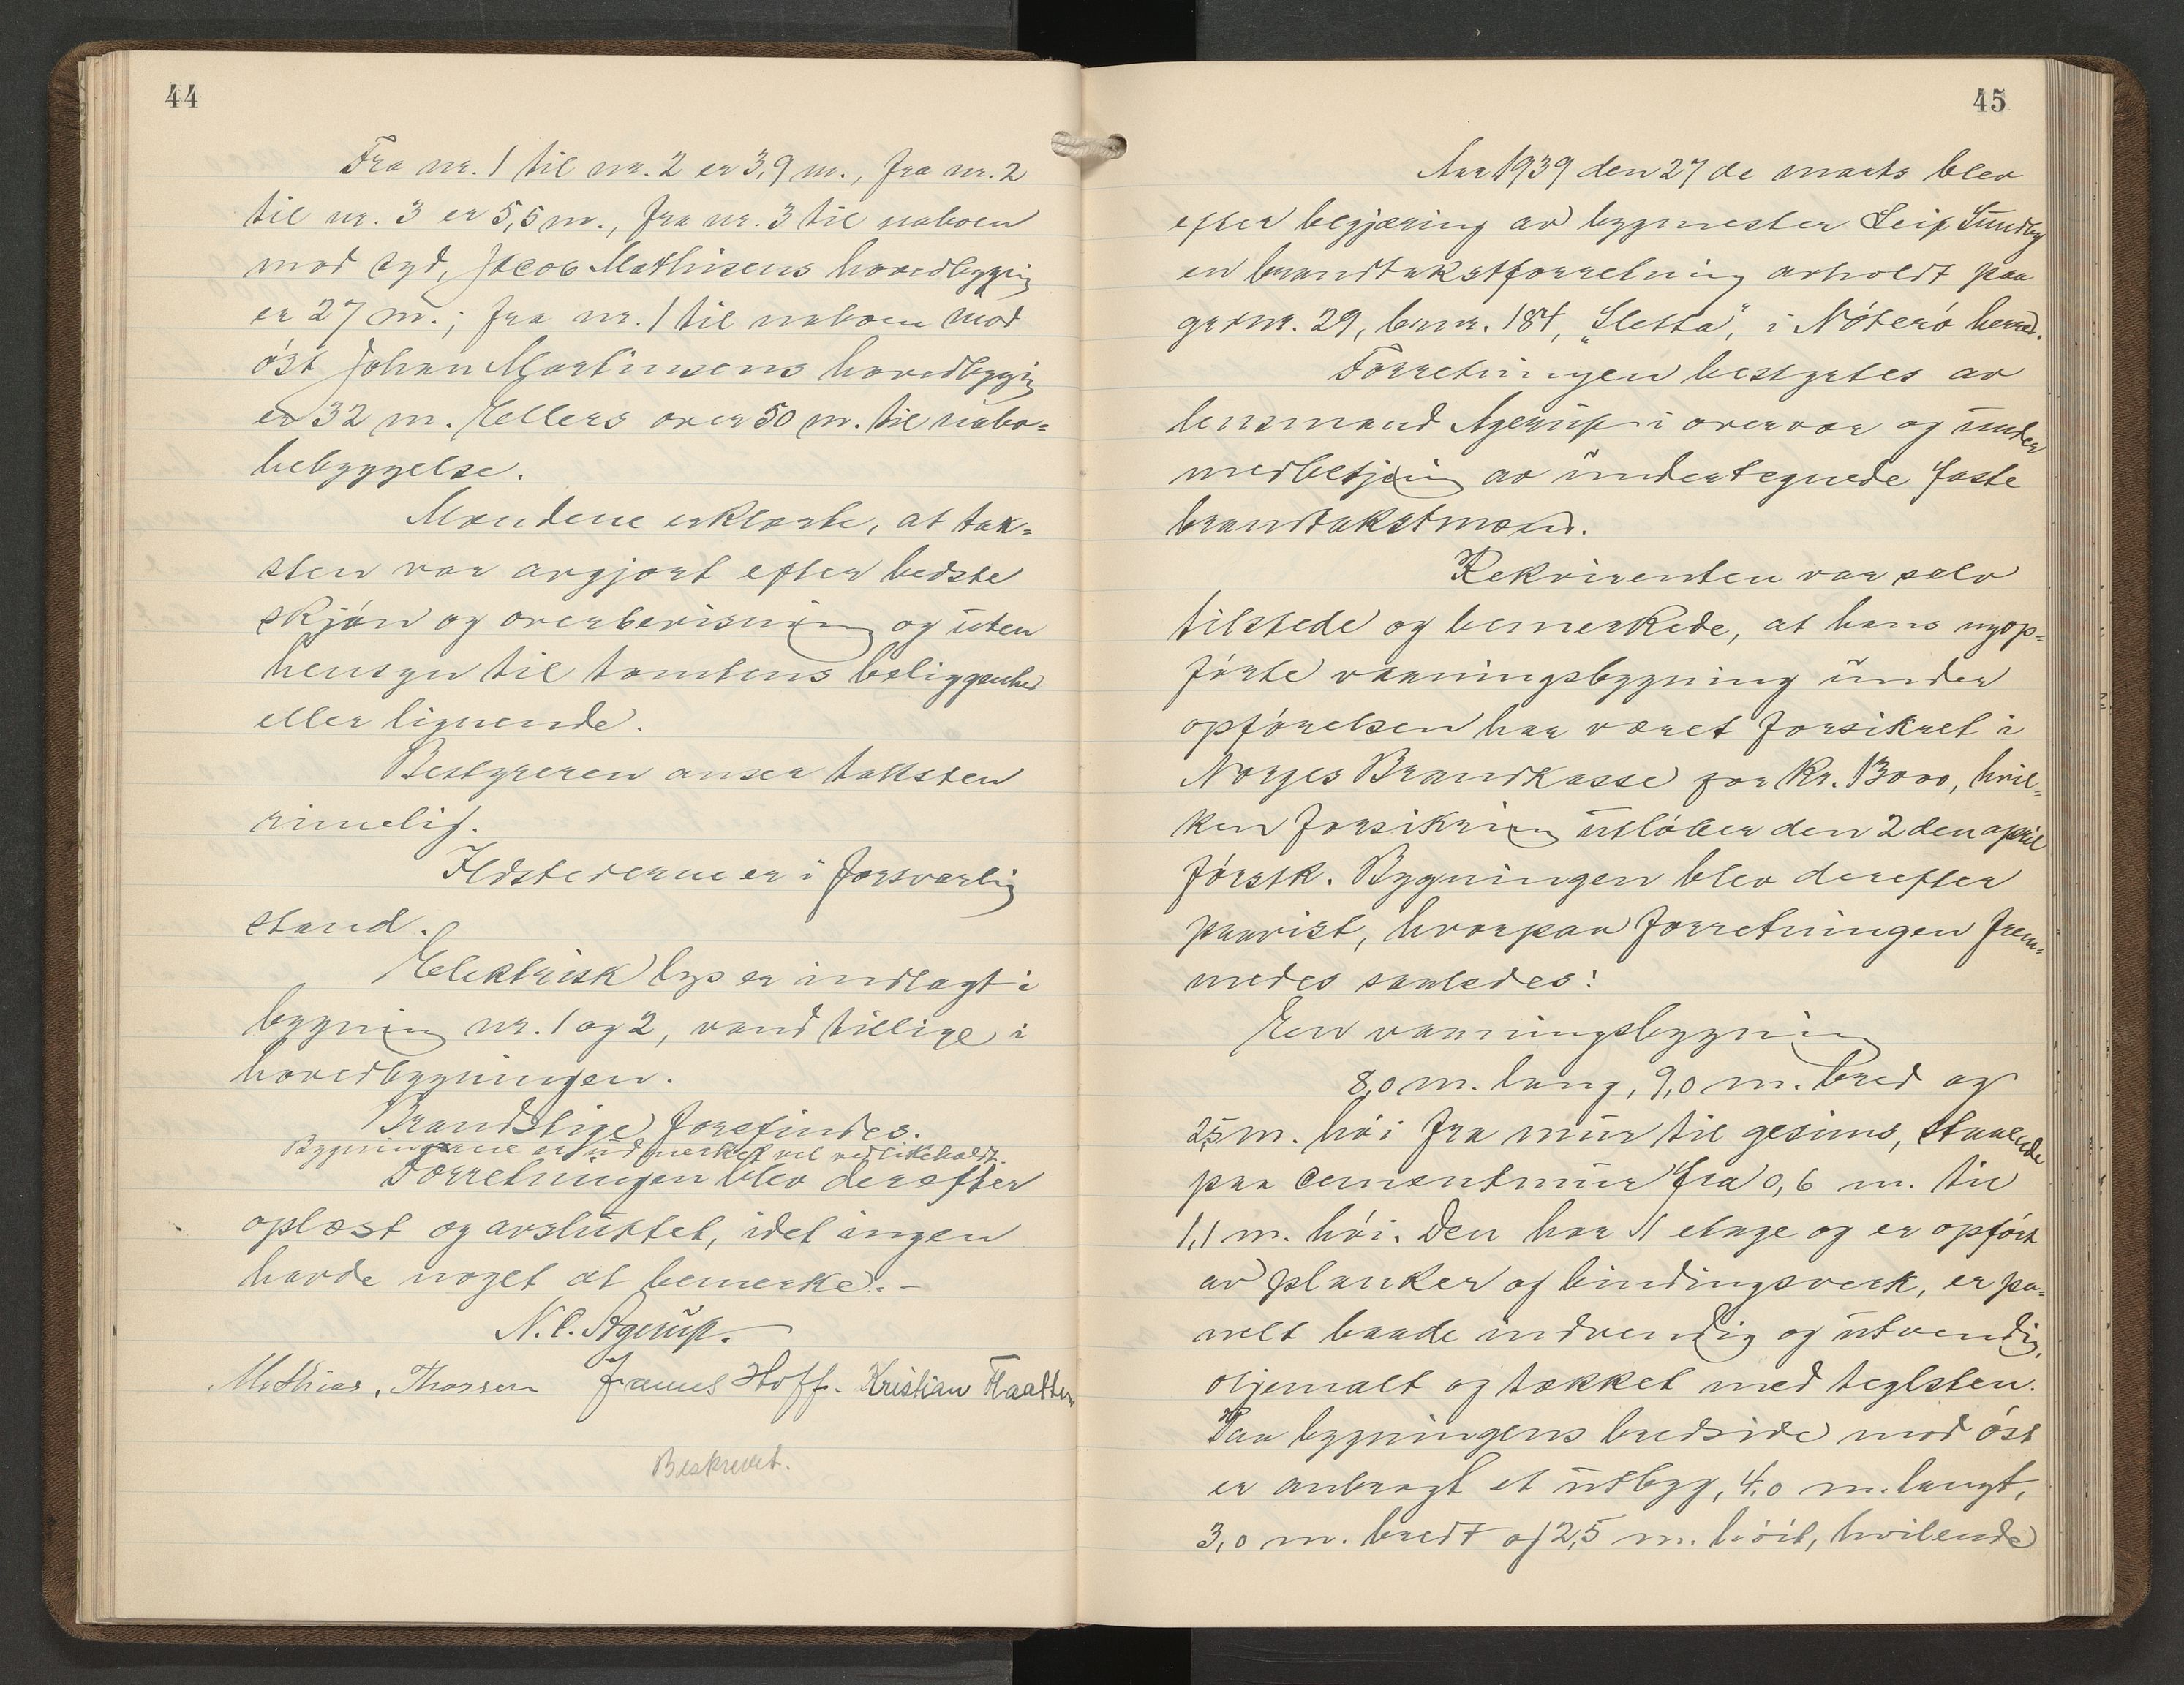 44
Fra nr. 1 til nr. 2 er 3,9 m., fra nr. 2
til nr. 3 er 5,5 m., fra nr. 3 til naboen
mod syd, Jacob Mathisens hovedbygnin
er 27 m.; fra nr. 1 til naboen mod
øst Johan Martinsens hovedbygnin
er 32 m. Ellers over 50 m. til nabo=
bebyggelse.
Mændene erklærte, at tak=
sten var avgjort efter bedste
skjøn og overbevisning og uten
hensyn til tomtens beliggenhed
eller lignende.
Bestyreren anser taksten
rimelig.
Ildstederne er i forsvarlig
stand.
Elektrisk lys er indlagt i
bygning nr. 1 og 2, vand tillige i
hovedbygningen.
Brandstige forefindes.
Bygningerne er udmerket vel vedlikeholdt.
Forretningen blev derefter
oplæst og avsluttet, idet ingen
havde noget at bemerke. -
N. C. Agerup.
Mathias. Thorsen Hoff. Kristian Flaatten
Beskrevet.
45
Aar 1939 den 27 de marts blev
efter begjæring av bygmester Leif Sundby
en brandtakstforretning avholdt paa
gaardnr. 29, brnr. 184, "Sletta", i Nøterø herred.
Forretningen bestyrtes av
lensmand Agerup i overvær og under
medbetjening av undertegnede faste
brandtakstmænd.
Rekvirenten var selv
tilstede og bemerkede, at hans nyop=
førte vaaningsbygning under
opførelsen har været forsikret i
Norges Brandkasse for kr. 13000, hvil=
ken forsikring utløber den 2 den april
førstk. Bygningen blev derefter
paavist, hvorpaa forretningen frem=
medes saaledes:
En vaaningsbygning
8,0 m. lang, 9,0 m. bred og
2,5 m. høi fra mur til gesims, staaende
paa cementmur fra 0,6 m. til
1,1 m. høi. Den har 1 etage og er opført
av planker og bindingsverk, er pa=
nelt baade indvendig og utvendig,
oljemalt og tækket med teglsten.
Paa bygningens bredside mod øst
er anbragt et utbyg, 4,0 m. langt,
3,0 m. bredt og 2,5 m. høit, hvilende